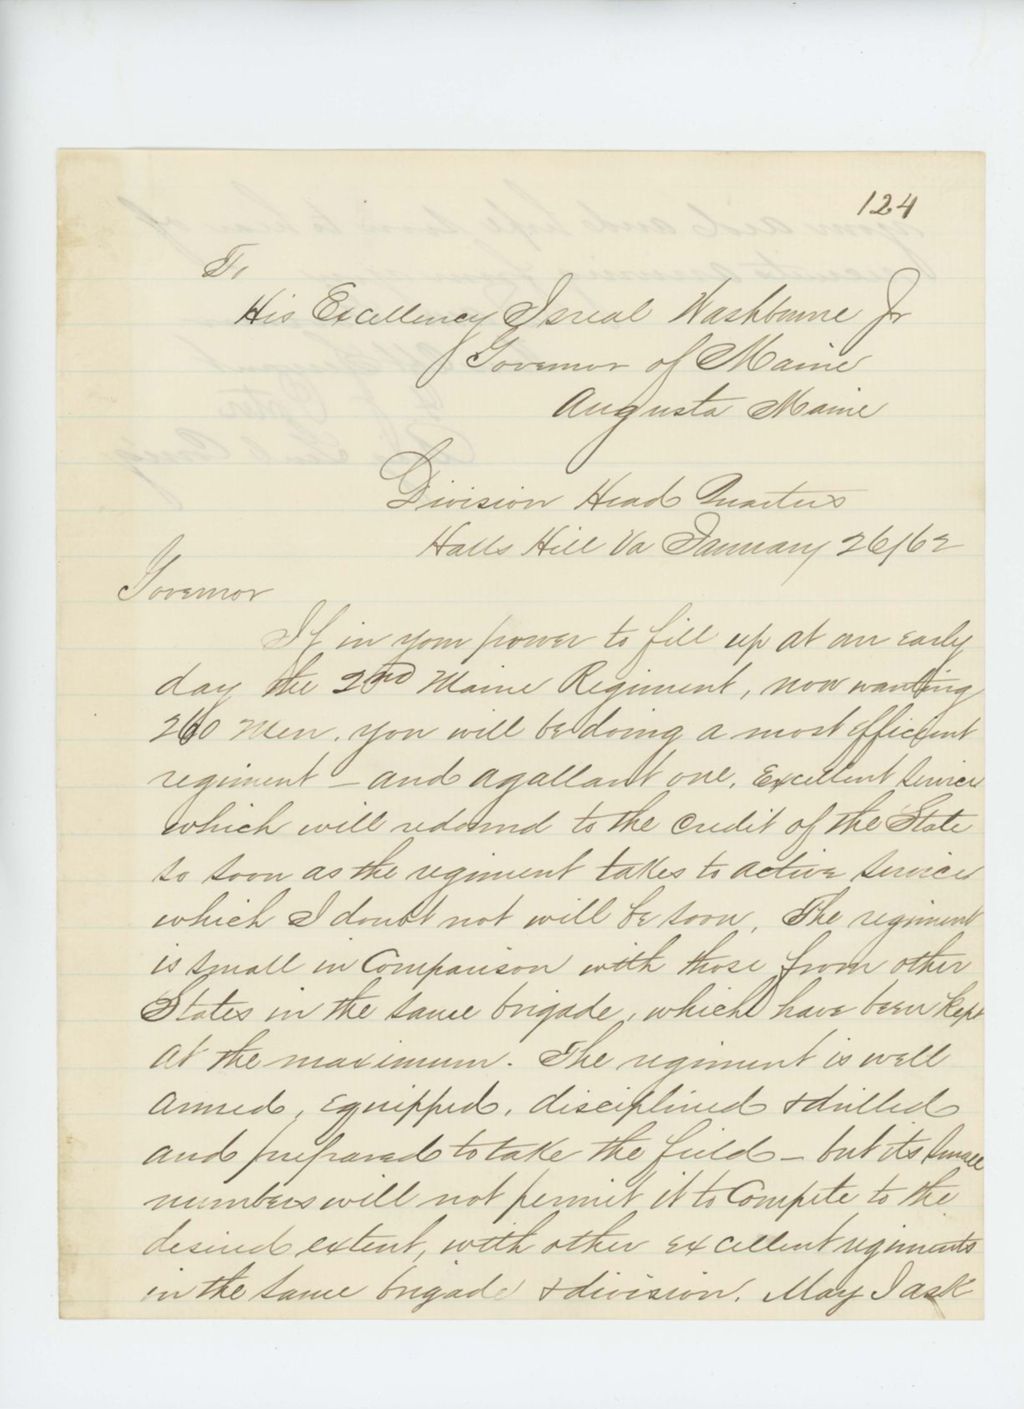 124
To
His Excellency Isreal Washburne Jr
Governor of Maine
Augusta Maine
Division Head Quarters
Halls Hill Va January 26/62
Governor
If in your power to fill up at an early
day the 2nd Maine Regiment, now wanting
260 men, you will be doing a most efficient
regiment - and a gallant one, Excellent service
which will redound to the credit of the State
so soon as the regiment takes to active service
which I doubt not will be soon, The regiment
is small in comparison with those from other
States in the same brigade, which have been kept
at the maximum. The regiment is well
armed, equipped, disciplined & drilled
and prepared to take the field - but its small
numbers will not permit it to compete to the
desired extent, with other excellent regiments
in the same brigade & division. May I ask